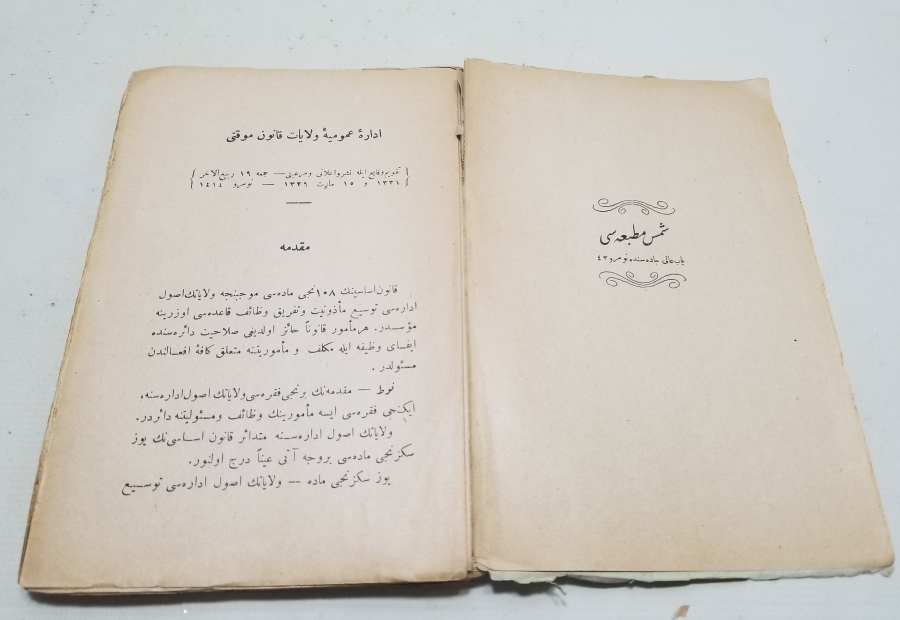 شمس مطبعه‌سی
باب عالی جاده‌سنده نومرو ٤٣
ادارهٔ عمومیهٔ ولایات قانون موقتی
تقویم وقایع ایله نشر و اعلانی ومرعیتی — جمعه ١٩ ربیع الآخر
١٣٣١ و ١٥ مارت ١٣٢٩ — نومرو ١٤١٤
مقدمه
قانون اساسینك ١٠٨ نجی ماده‌سی موجبنجه ولایاتك اصول
اداره‌سی توسیع مأذونیت وتفریق وظائف قاعده‌سی اوزرینه
مؤسسدر. هر مأمور قانوناً حائز اولدیغی صلاحیت دائره‌سنده
ایفای وظیفه ایله مکلف و مأموریتنه متعلق کافهٔ افعالندن
مسئولدر .
نوط — مقدمه‌نك برنجی فقره‌سی ولایاتك اصول اداره‌سنه،
ایکنجی فقره‌سی ایسه مأمورینك وظائف ومسئولیتنه دائردر.
ولایاتك اصول اداره‌سنه متدائر قانون اساسی‌نك یوز
سکزنجی ماده‌سی بروجه آتی عیناً درج اولنور.
یوز سکزنجی ماده — ولایاتك اصول اداره‌سی توسیع